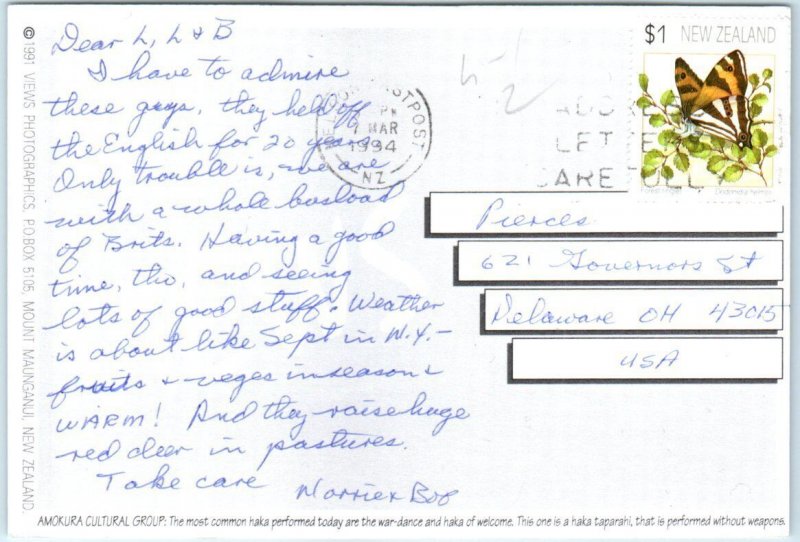 © 1991 VIEWS PHOTOGRAPHICS, P.O.BOX 5105, MOUNT MAUNGANUI, NEW ZEALAND.
Dear L, L & B
I have to admire
these guys, they held off
the English for 20 years.
Only trouble is, we are
with a whole busload
of Brits. Having a good
time, tho, and seeing
lots of good stuff. Weather
is about like Sept in N.Y. -
fruits & veges in season &
WARM! And they raise huge
red deer in pastures.
Take care
POST
PM
7 MAR
1994
NZ
$1 NEW ZEALAND
Pierces
621 Governors St
Delaware OH 43015
USA
AMOKURA CULTURAL GROUP: The most common haka performed today are the war-dance and haka of welcome. This one is a haka taparahi, that is performed without weapons.